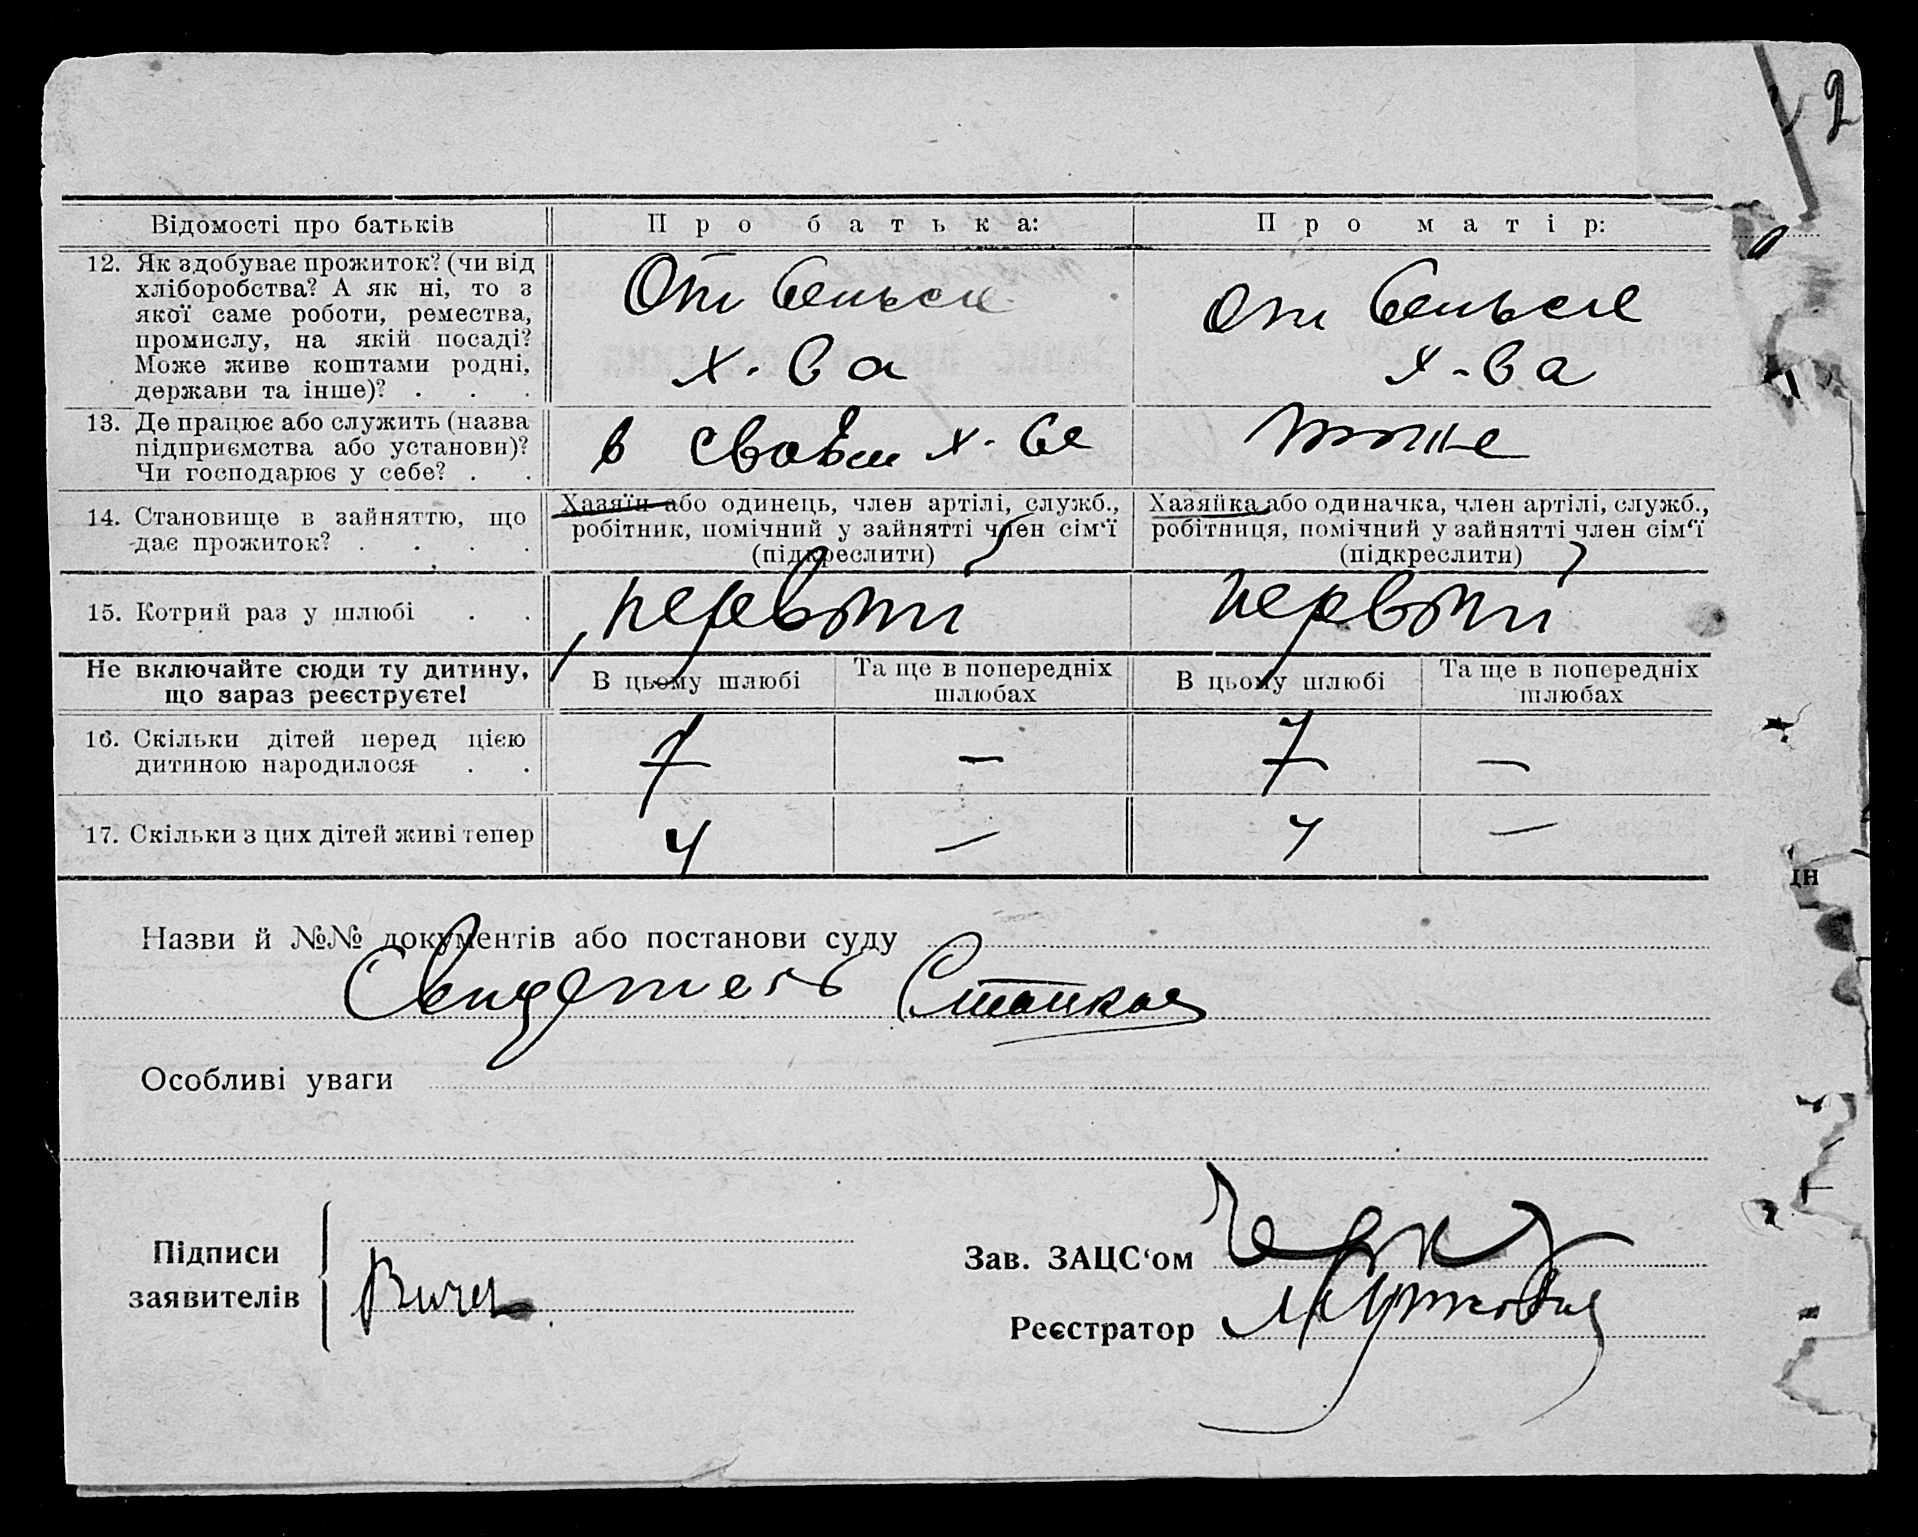 2
Відомості про батьків
Про батька:
Про матір:
12. Як здобуває прожиток? (чи від
хліборобства? А як ні, то з
якої саме роботи, ремества,
промислу, на якій посаді?
Може живе коштами родні,
держави та інше)? . . .
От сельск
х-ва
От сельск
х-ва
13. Де працює або служить (назва
підприємства або установи)?
Чи господарює у себе? . .
в своем х-ве
тоже
14. Становище в зайняттю, що
дає прожиток? . . . .
Хазяїн або одинець, член артілі, служб.,
робітник, помічний у зайнятті член сім'ї
(підкреслити)
Хазяйка або одиначка, член артілі, служб.,
робітниця, помічний у зайнятті член сім'ї
(підкреслити)
15. Котрий раз у шлюбі . .
первый
первый
Не включайте сюди ту дитину,
що зараз реєструєте!
В цьому шлюбі
Та ще в попередніх
шлюбах
В цьому шлюбі
Та ще в попередніх
шлюбах
16. Скільки дітей перед цією
дитиною народилося . .
7
—
7
—
17. Скільки з цих дітей живі тепер
4
—
4
—
Назви й №№ документів або постанови суду
Свидетель
Особливі уваги
Підписи
заявителів
Зав. ЗАЦС'ом
Реєстратор